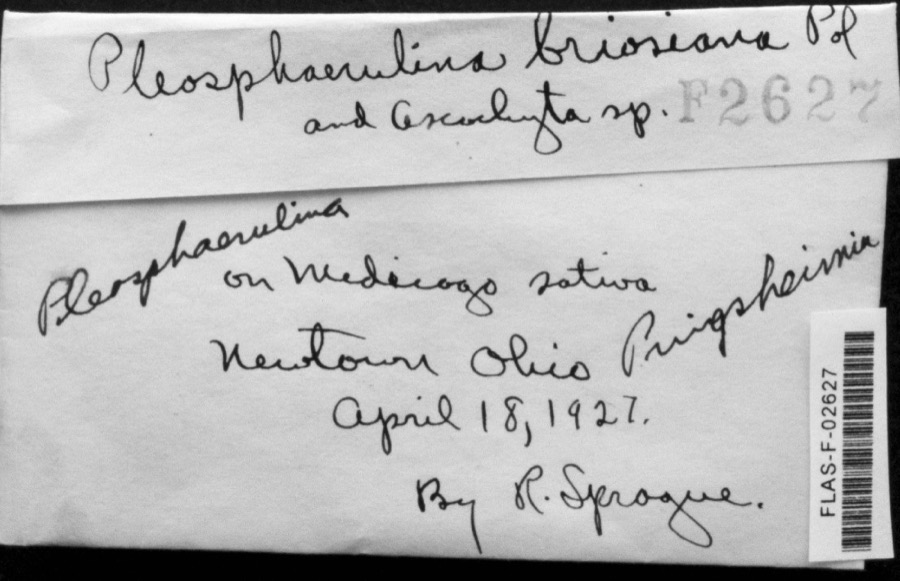 Pleosphaerulina briosiana Pol
and Ascochyta sp. F2627
Pleosphaerulina
on Medicago sativa
Pringsheimia
Newtown Ohio
April 18, 1927.
By R. Sprague.
FLAS-F-02627